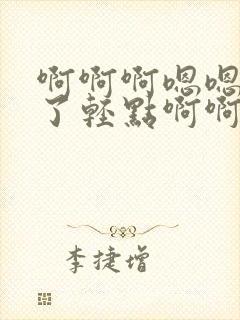 啊啊啊嗯嗯
了輕點啊啊
李捷增